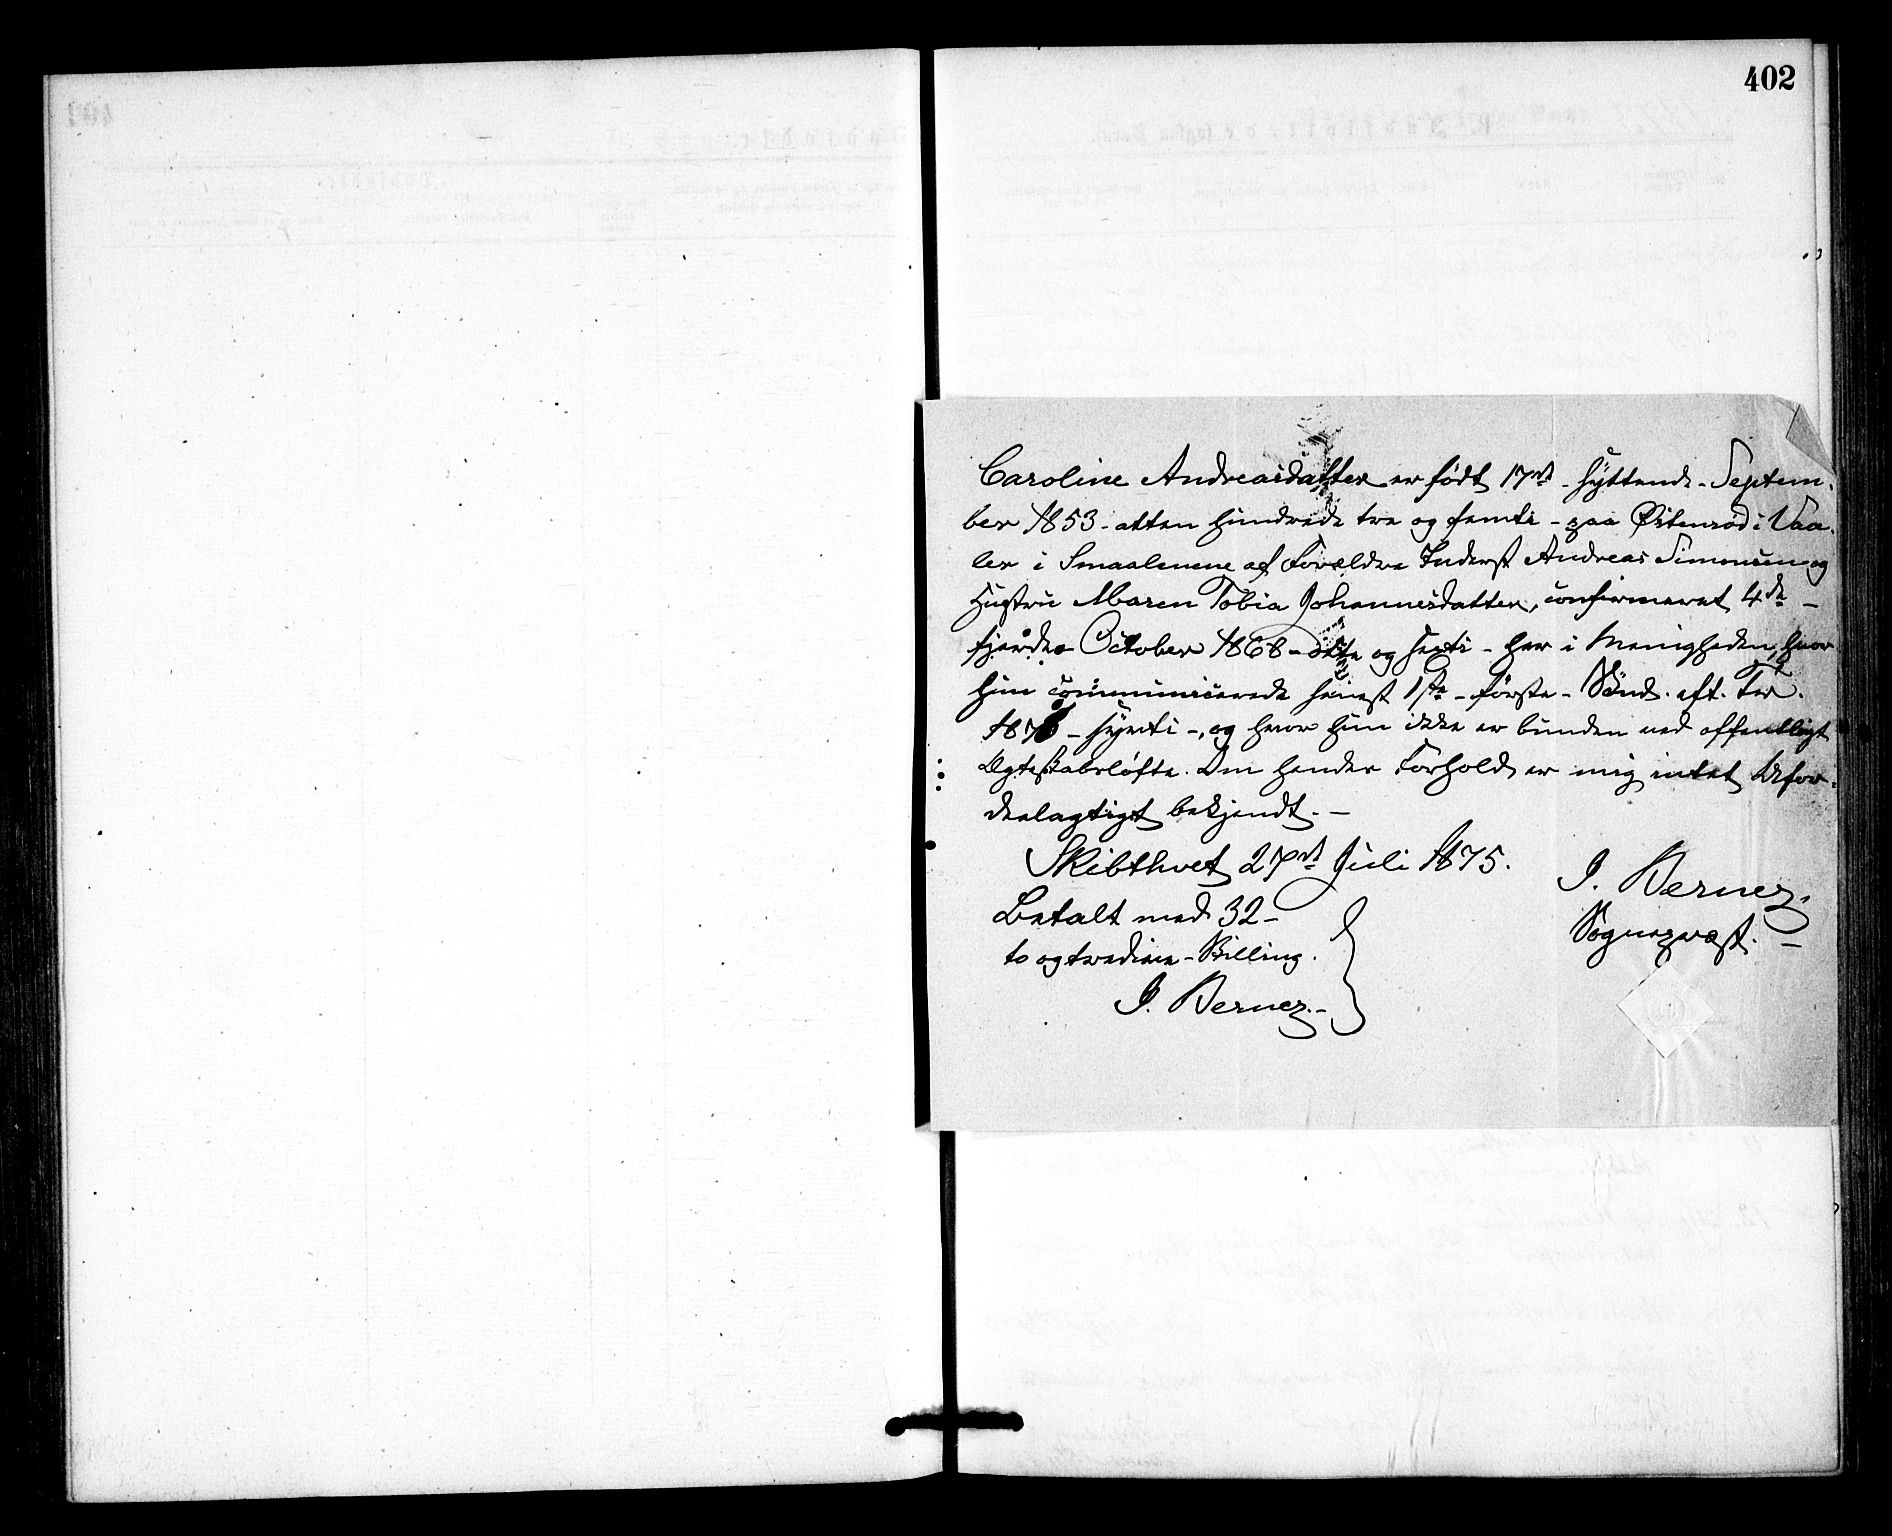 402
Caroline Andreasdatter er født 17de - syttende - Septem-
ber 1853 - atten hundrede tre og femti - paa Østenrød i Vaa-
ler i Smaalenene af Forældre Inderst Andreas Simensen og
Hustru Maren Tobia Johannesdatter, confirmeret 4de -
fjerde - October 1868 - otte og sexti - her i Menigheden, hvor
hun communicerede senest 1ste - første - Sønd. eft. Tref.
187 - sytti -, og hvor hun ikke er bunden ved offentligt
Ægteskabsløfte. Om hendes Forhold er mig intet Ufor-
deelagtigt bekjendt. -
Skibthvet 27de Juli 1875.
J. Berner.
Sognepræst. -
Betalt med 32 -
to og tredive - Skilling.
J. Berner. -